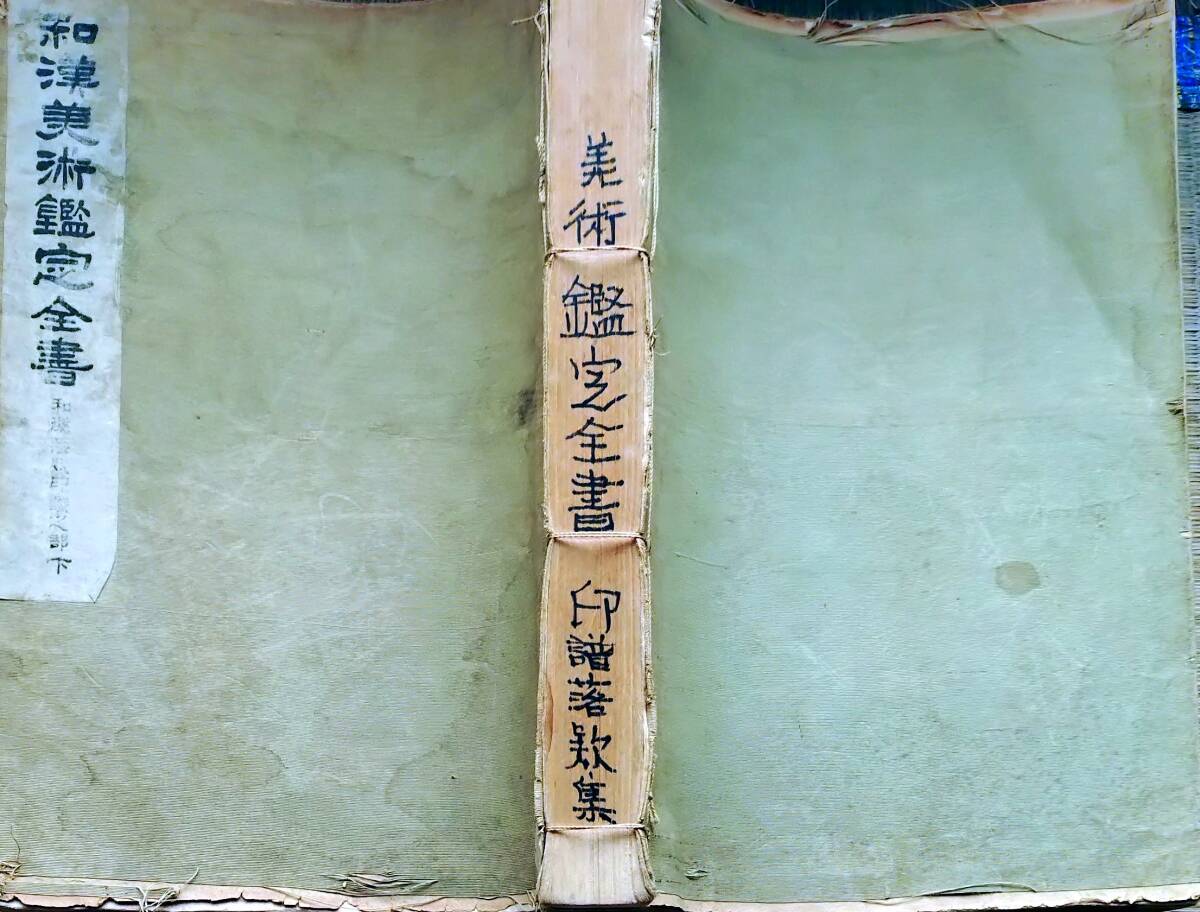 和漢美術鑑定全書
和漢落款印譜之部 下
美術鑑定全書 印譜落款集